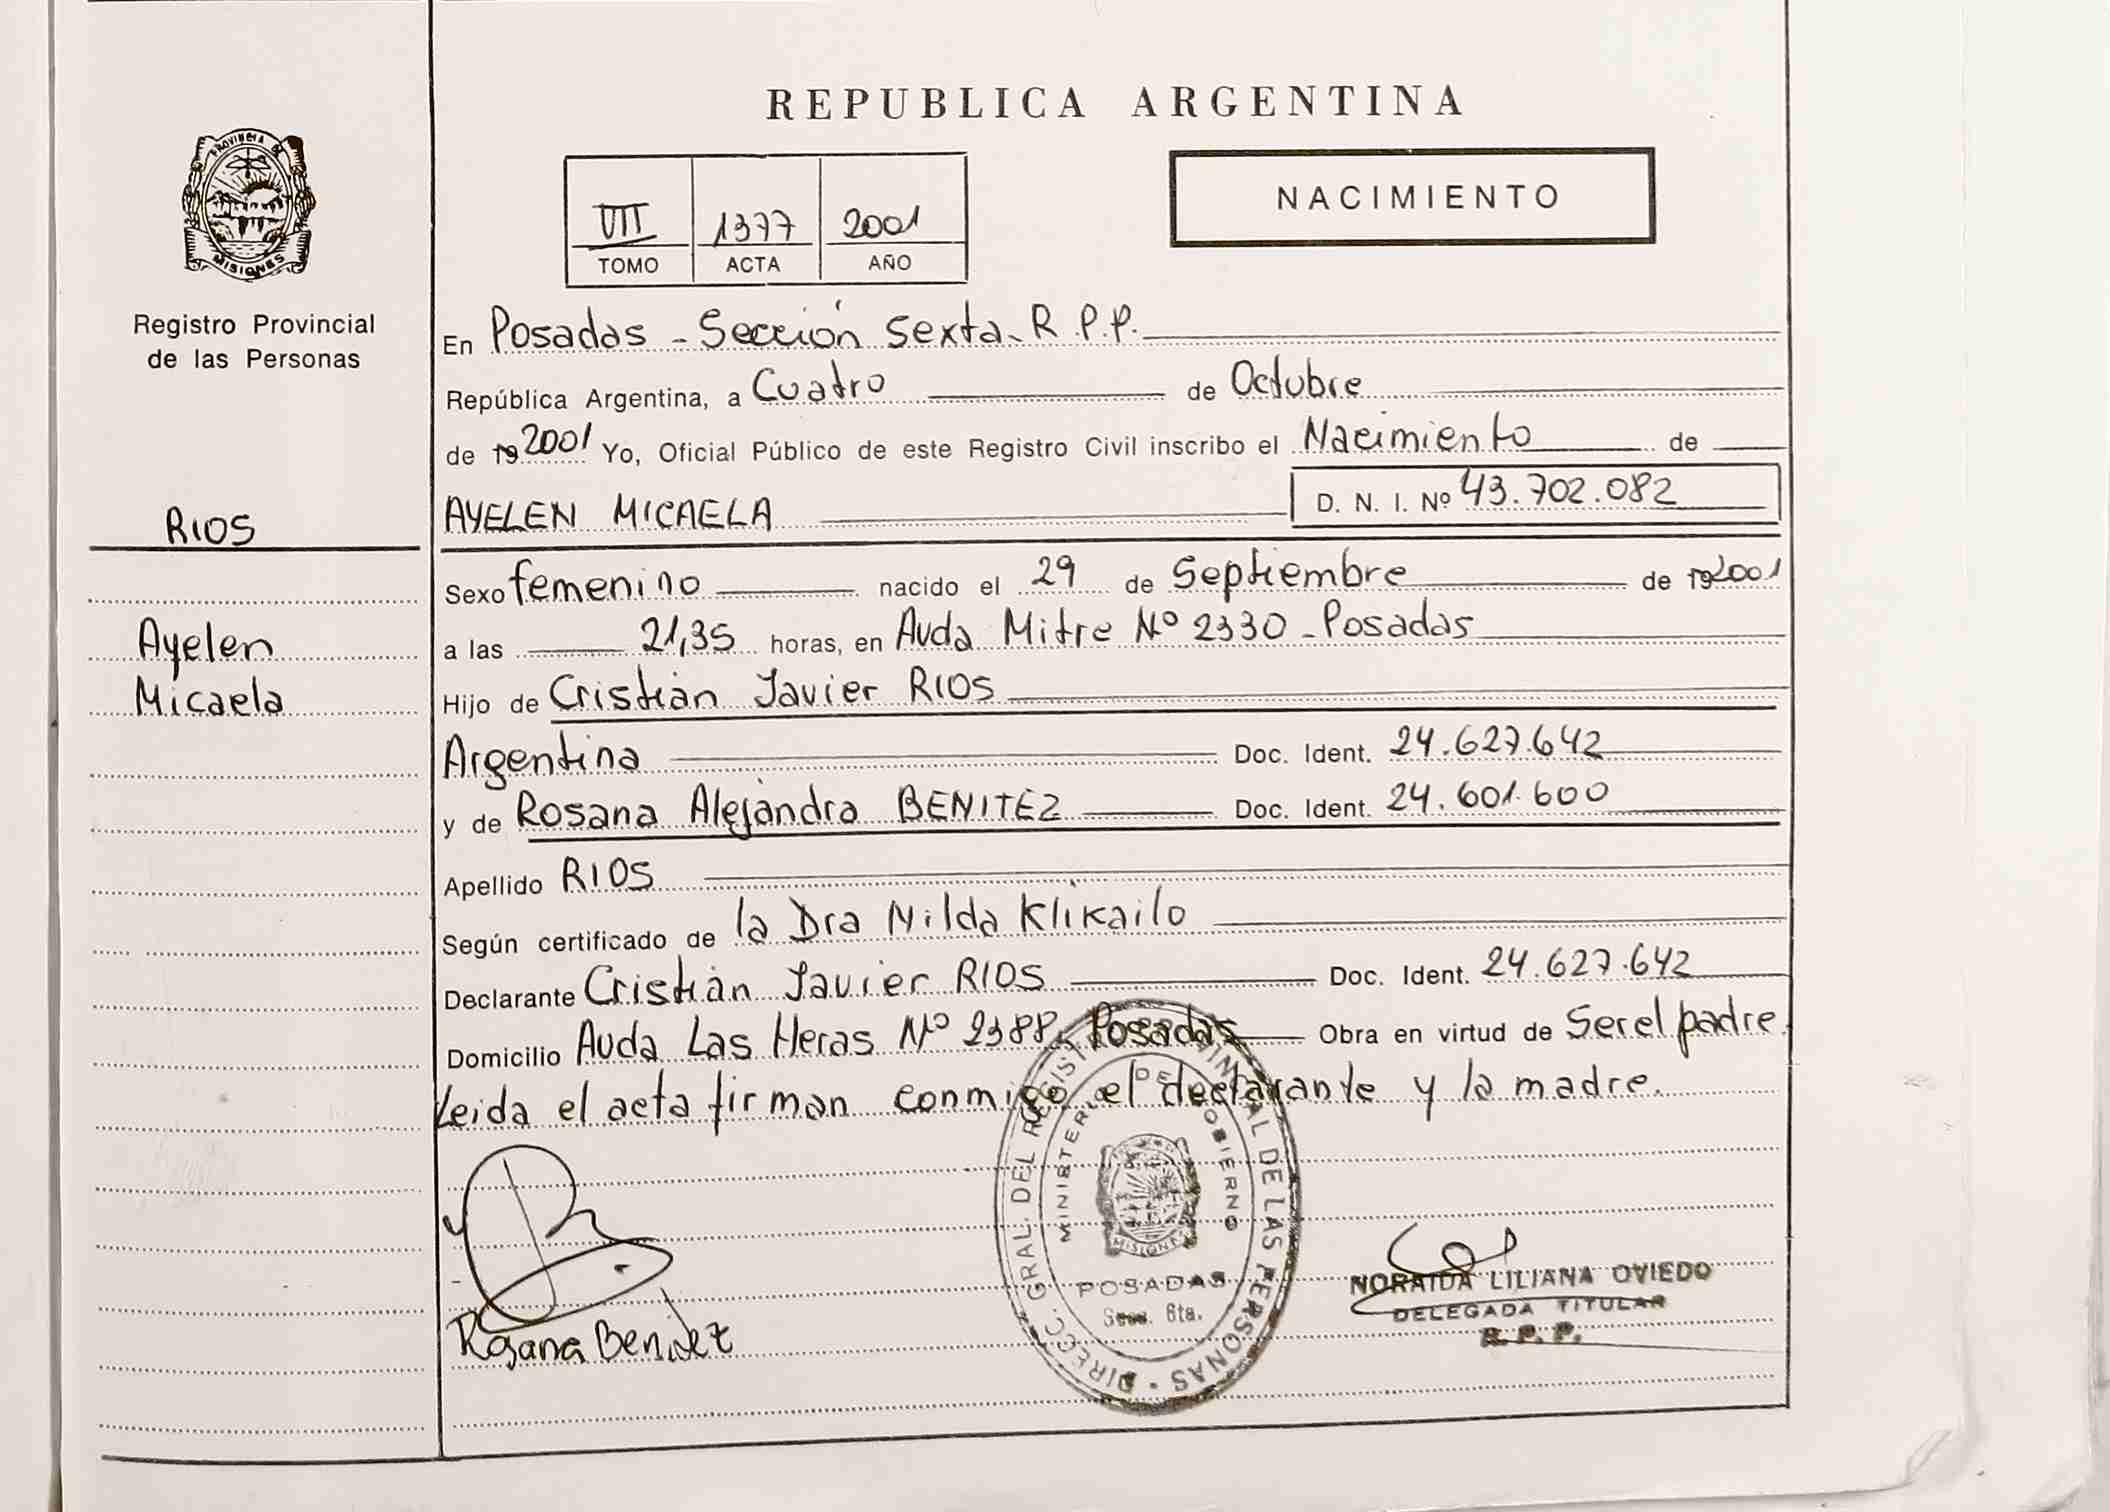 REPUBLICA ARGENTINA
PROVINCIA DE
MISIONES
Registro Provincial
de las Personas
VII 1377 2001
TOMO ACTA AÑO
NACIMIENTO
En Posadas - Sección Sexta - R.P.P.
República Argentina, a Cuatro de Octubre
de 19 2001 Yo, Oficial Público de este Registro Civil inscribo el Nacimiento de
RIOS
AYELEN MICAELA D. N. I. Nº 43.702.082
Sexo femenino nacido el 29 de Septiembre de 19 2001
Ayelen
a las 21,35 horas, en Avda Mitre Nº 2330 - Posadas
Micaela
Hijo de Cristian Javier RIOS
Argentina Doc. Ident. 24.627.642
y de Rosana Alejandra BENITEZ Doc. Ident. 24.601.600
Apellido RIOS
Según certificado de la Dra Nilda Klikailo
Declarante Cristian Javier RIOS Doc. Ident. 24.627.642
Domicilio Avda Las Heras Nº 2388 Posadas Obra en virtud de Ser el padre.
Leida el acta firman conmigo el declarante y la madre.
DIRECC. GRAL. DEL REGISTRO PROVINCIAL DE LAS PERSONAS
MINISTERIO DE GOBIERNO
MISIONES
POSADAS
Secc. 6ta.
NORAIDA LILIANA OVIEDO
DELEGADA TITULAR
R. P. P.
Rosana Benitez